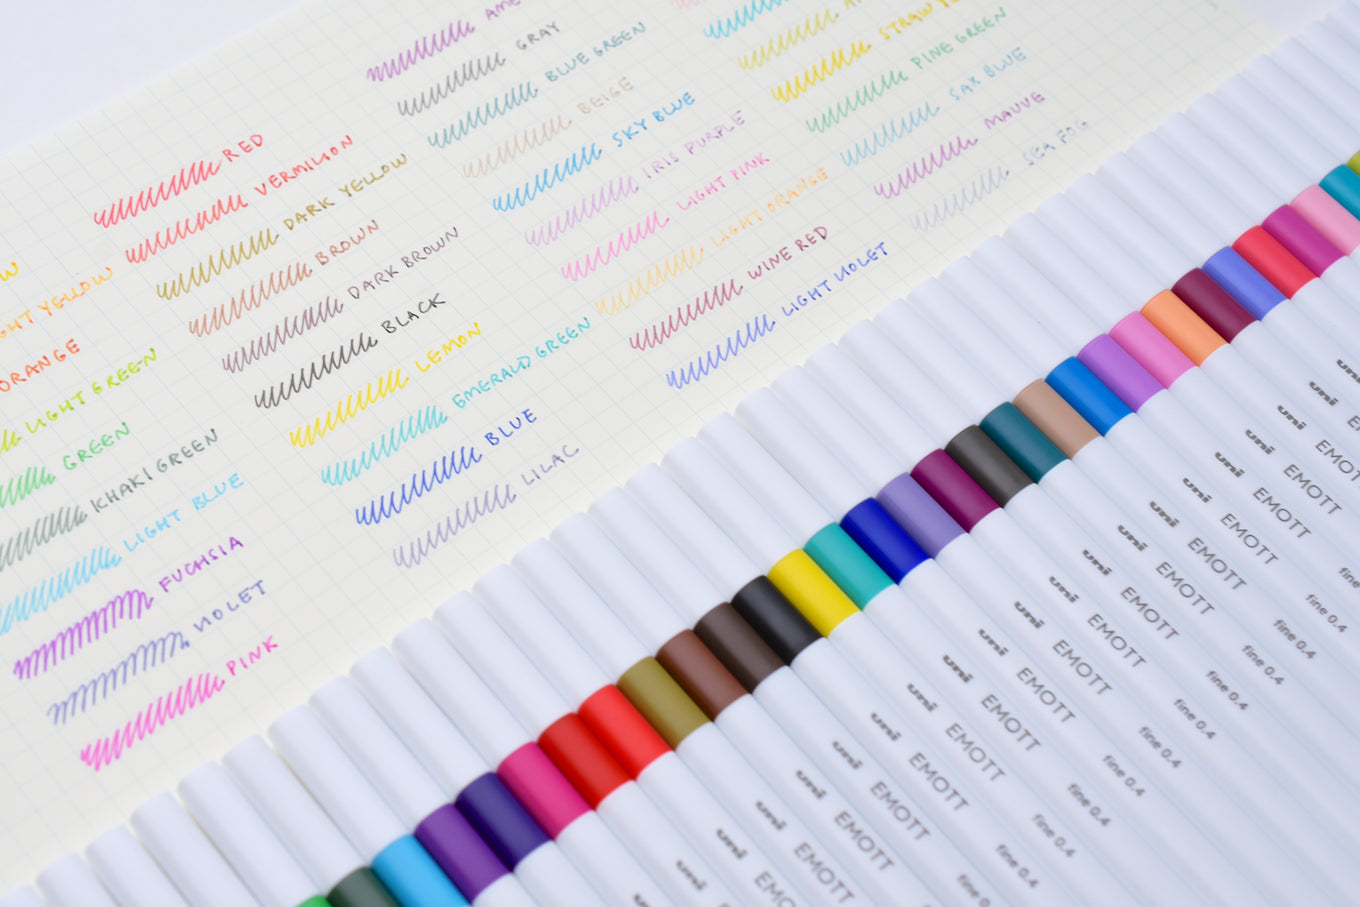 GHT YELLOW
ORANGE
LIGHT GREEN
GREEN
KHAKI GREEN
LIGHT BLUE
FUCHSIA
VIOLET
PINK
RED
VERMILION
DARK YELLOW
BROWN
DARK BROWN
BLACK
LEMON
EMERALD GREEN
BLUE
LILAC
GRAY
BLUE GREEN
BEIGE
SKY BLUE
IRIS PURPLE
LIGHT PINK
LIGHT ORANGE
WINE RED
LIGHT VIOLET
STRAW
PINE GREEN
SAX BLUE
MAUVE
SEA FOG
uni EMOTT
uni EMOTT
uni EMOTT
uni EMOTT fine 0.4
uni EMOTT fine 0.4
uni EMOTT fine 0.4
uni EMOTT fine 0.4
uni EMOTT fine 0.4
uni EMOTT fine 0.4
uni EMOTT fine 0.4
uni EMOTT fine 0.4
uni EMOTT fine 0.4
uni EMOTT fine
uni EMOTT
uni EMOTT
uni